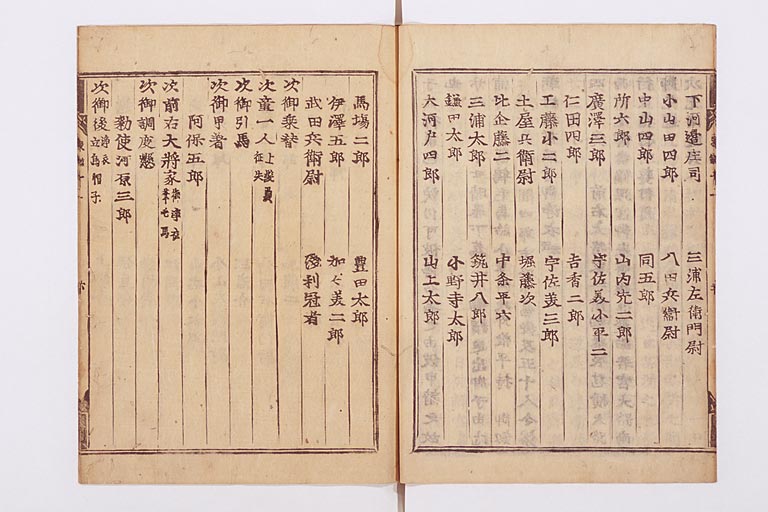 下河邊庄司 三浦左衛門尉
小山田四郎 八田兵衛尉
中山四郎 同五郎
所六郎 山内先二郎
廣澤三郎 宇佐美小平二
仁田四郎 吉香二郎
工藤小二郎 宇佐美三郎
土屋兵衛尉 堀藤次
比企藤二 中条平六
三浦太郎 筑井八郎
鎌田太郎 小野寺太郎
大河戸四郎 山上太郎
馬場二郎 豊田太郎
伊澤五郎 加々美二郎
武田兵衛尉 淺利冠者
次御乘替
次童一人 上髪着 征矢
次御引馬
次御甲著
阿保五郎
次前右大將家 御淨衣 葦毛馬
次御調度懸
勅使河原三郎
次御後 淨衣 立烏帽子